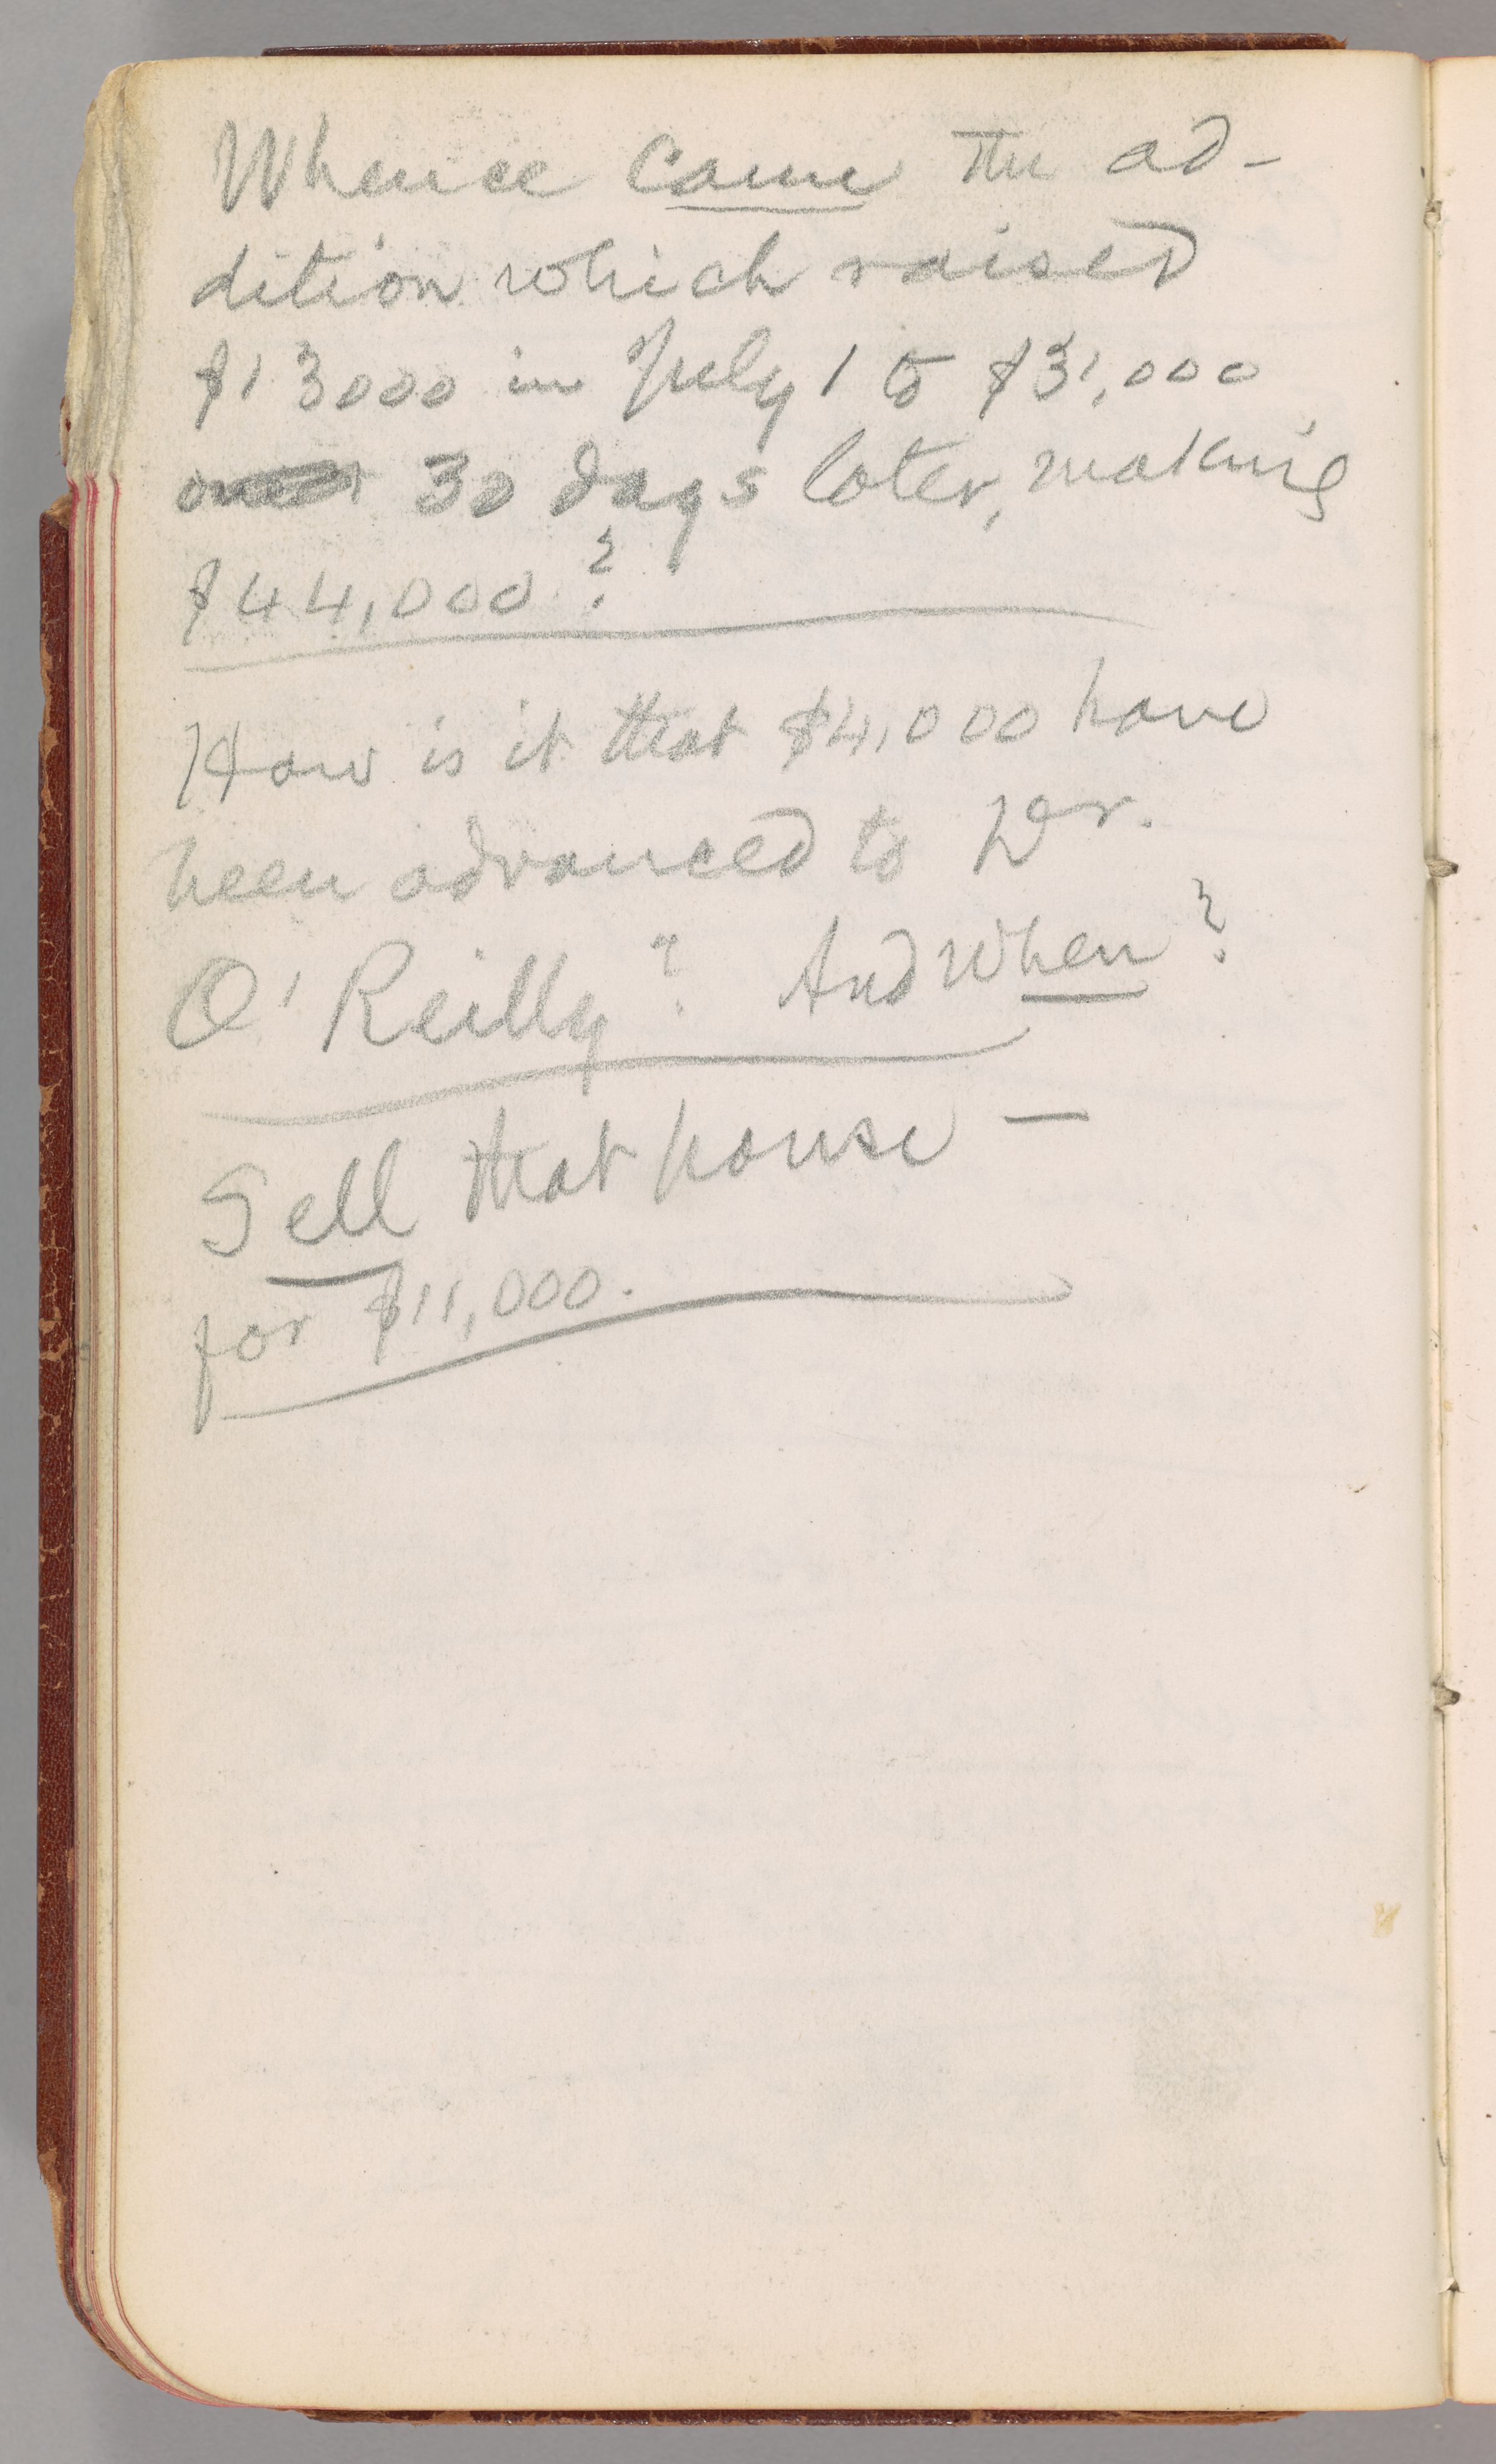 Whence came the ad-
dition which raised
$13000 in July 1 to $31,000
30 days later, making
$44,000?
How is it that $4,000 have
been advanced to Dr.
O'Reilly? And when?
Sell that house —
for $11,000.